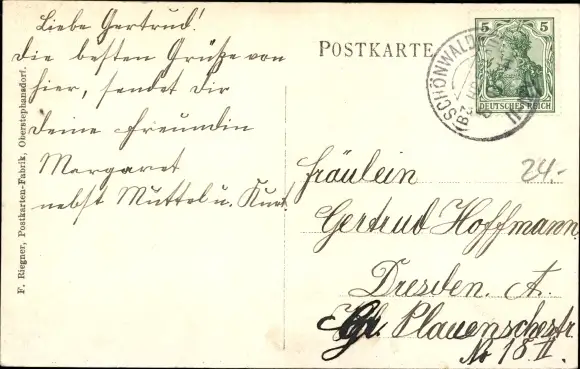 Liebe Gertrud!
Die besten Grüße von
hier, sendet Dir
Deine Freundin
Margaret
nebst Muttel u. Kurt.
F. Riegner, Postkarten-Fabrik, Oberstephansdorf.
POSTKARTE
5 5
DEUTSCHES REICH
SCHÖNWALD
Fräulein
24.-
Gertrud Hoffmann
Dresden. A.
Gr. Plauenschestr.
No 18 II.